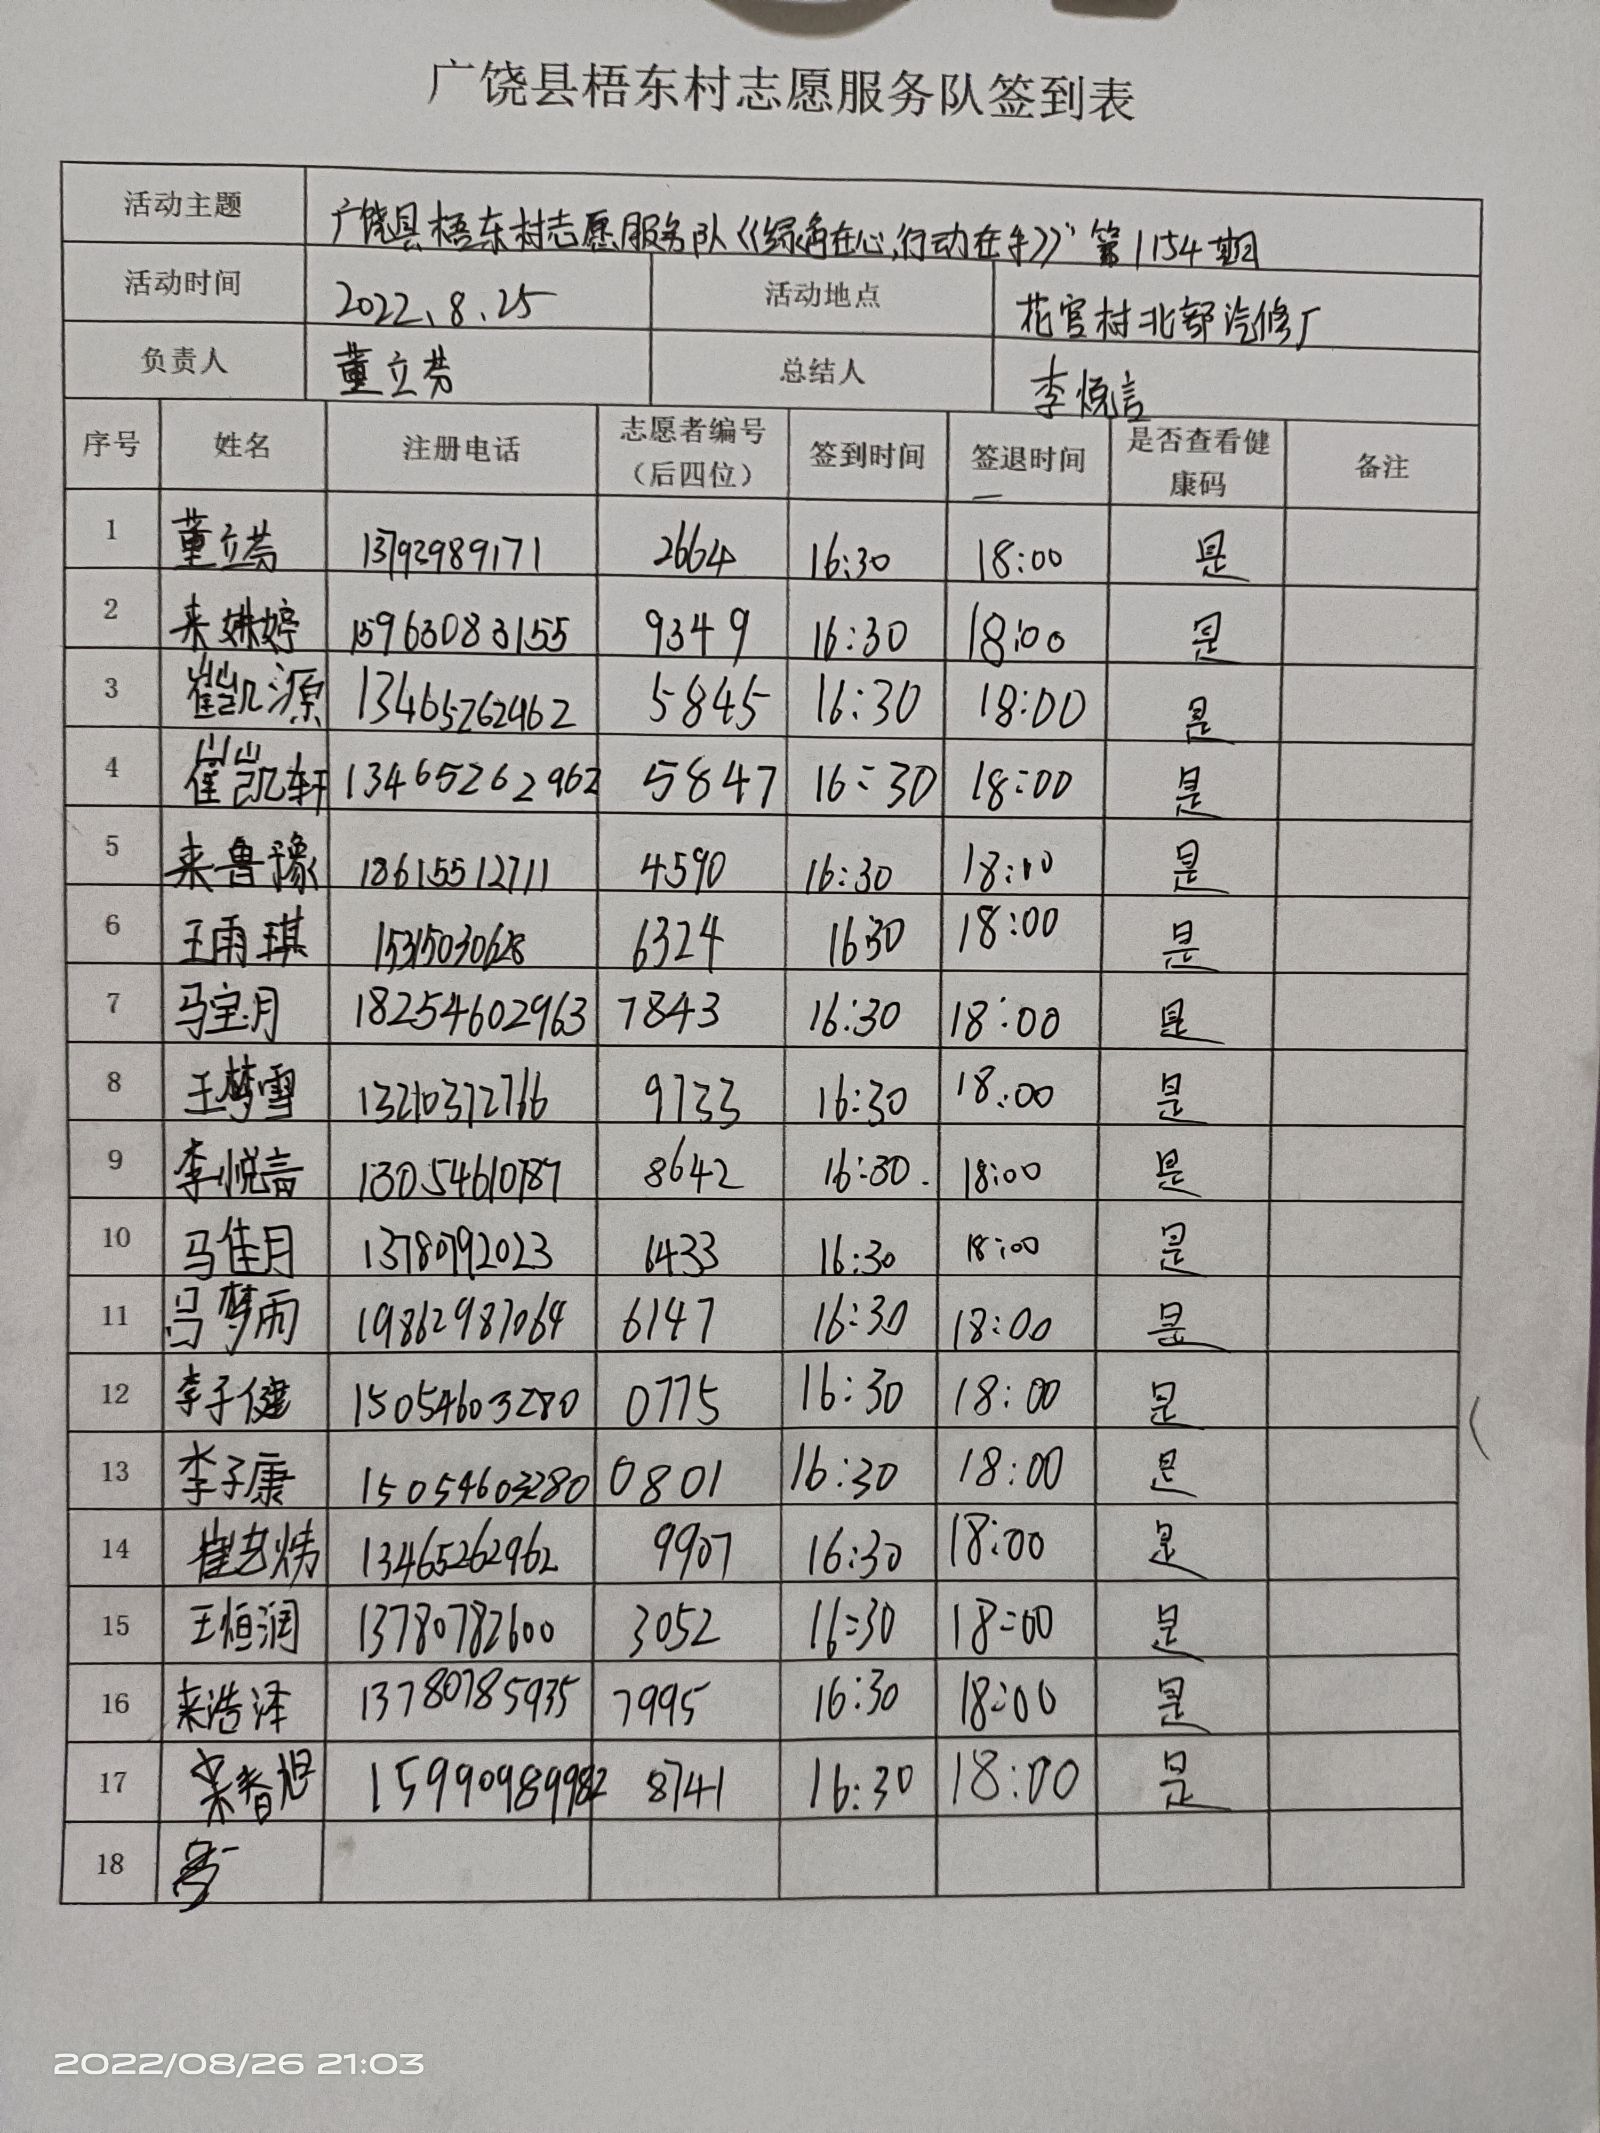 广饶县梧东村志愿服务队签到表
活动主题 广饶县梧东村志愿服务队《绿色在心,行动在手》第1154期
活动时间 2022.8.25 活动地点 花官村北部汽修厂
负责人 董立芬 总结人 李悦言
序号 姓名 注册电话 志愿者编号（后四位） 签到时间 签退时间 是否查看健康码 备注
1 董立芬 13793989171 2664 16:30 18:00 是
2 来姝婷 15963083155 9349 16:30 18:00 是
3 崔凯源 13465262962 5845 16:30 18:00 是
4 崔凯轩 13465262962 5847 16:30 18:00 是
5 来鲁豫 18615512711 4590 16:30 18:00 是
6 王雨琪 15315030628 6324 1630 18:00 是
7 马宝月 18254602963 7843 16:30 18:00 是
8 王梦雪 13210372766 9733 16:30 18:00 是
9 李悦言 13054610787 8642 16:30. 18:00 是
10 马佳月 13780792023 6433 16:30 18:00 是
11 马梦雨 19862987064 6147 16:30 18:00 是
12 李子健 15054603280 0775 16:30 18:00 是
13 李子康 15054603280 0801 16:30 18:00 是
14 崔艺炜 13465262962 9907 16:30 18:00 是
15 王恒润 13780782600 3052 16:30 18:00 是
16 来浩泽 13780785935 7995 16:30 18:00 是
17 15990989982 8741 16:30 18:00 是
18
2022/08/26 21:03